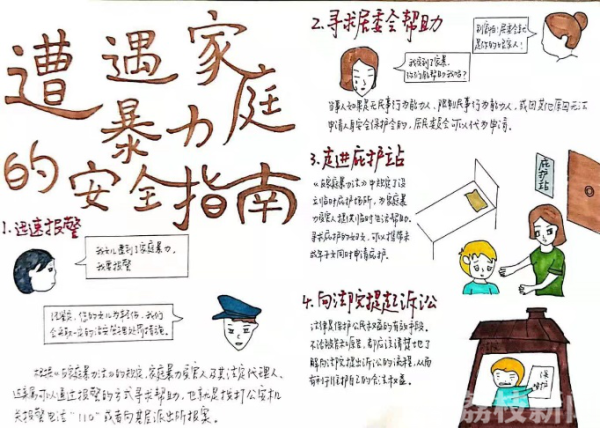 遭遇家庭
暴力
的安全指南
1.迅速报警
我女儿遭到了家庭暴力,
我要报警
经鉴定,您的女儿为轻伤,我们
会采取一定的治安管理处罚措施。
根据《反家庭暴力法》的规定,家庭暴力受害人及其法定代理人、
近亲属可以通过报警的方式寻求帮助,也就是拨打公安机
关报警电话"110"或者向基层派出所报案。
2.寻求居委会帮助
我受到了家暴,
你们能帮助我吗?
别害怕!居委会就
是你的娘家人!
当事人如果是无民事行为能力人、限制民事行为能力人,或因其他原因无法
申请人身安全保护令的,居民委员会可以代为申请。
3.走进庇护站
《反家庭暴力法》中规定了设
立临时庇护场所,为家庭暴
力受害人提供临时生活帮助。
寻求庇护的妇女,可以携带未
成年子女同时申请庇护。
庇护站
4.向法院提起诉讼
法律是保护公民权益的有效手段。
不论被害和原告,都应该清楚地了
解向法院提出诉讼的流程,从而
有利于维护自己的合法权益。
保
护
荔枝新闻